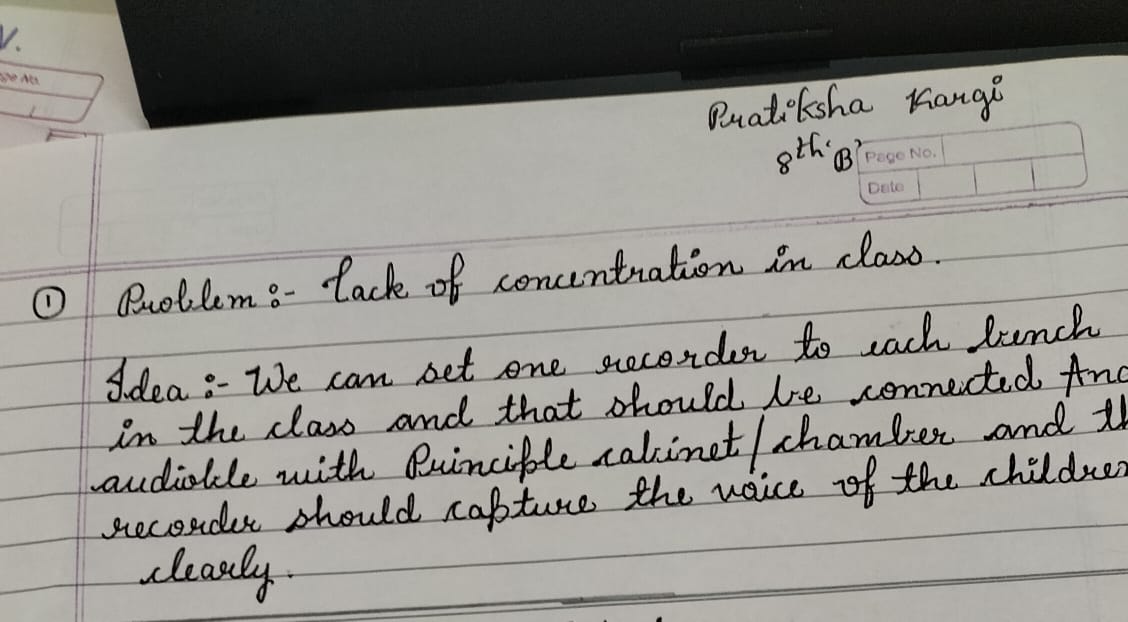 Pratiksha Kargi
8th 'B'
Page No.
Date
① Problem :- Lack of concentration in class.
Idea :- We can set one recorder to each bench
in the class and that should be connected And
audiable with Principle cabinet/chamber and th
recorder should capture the voice of the children
clearly.